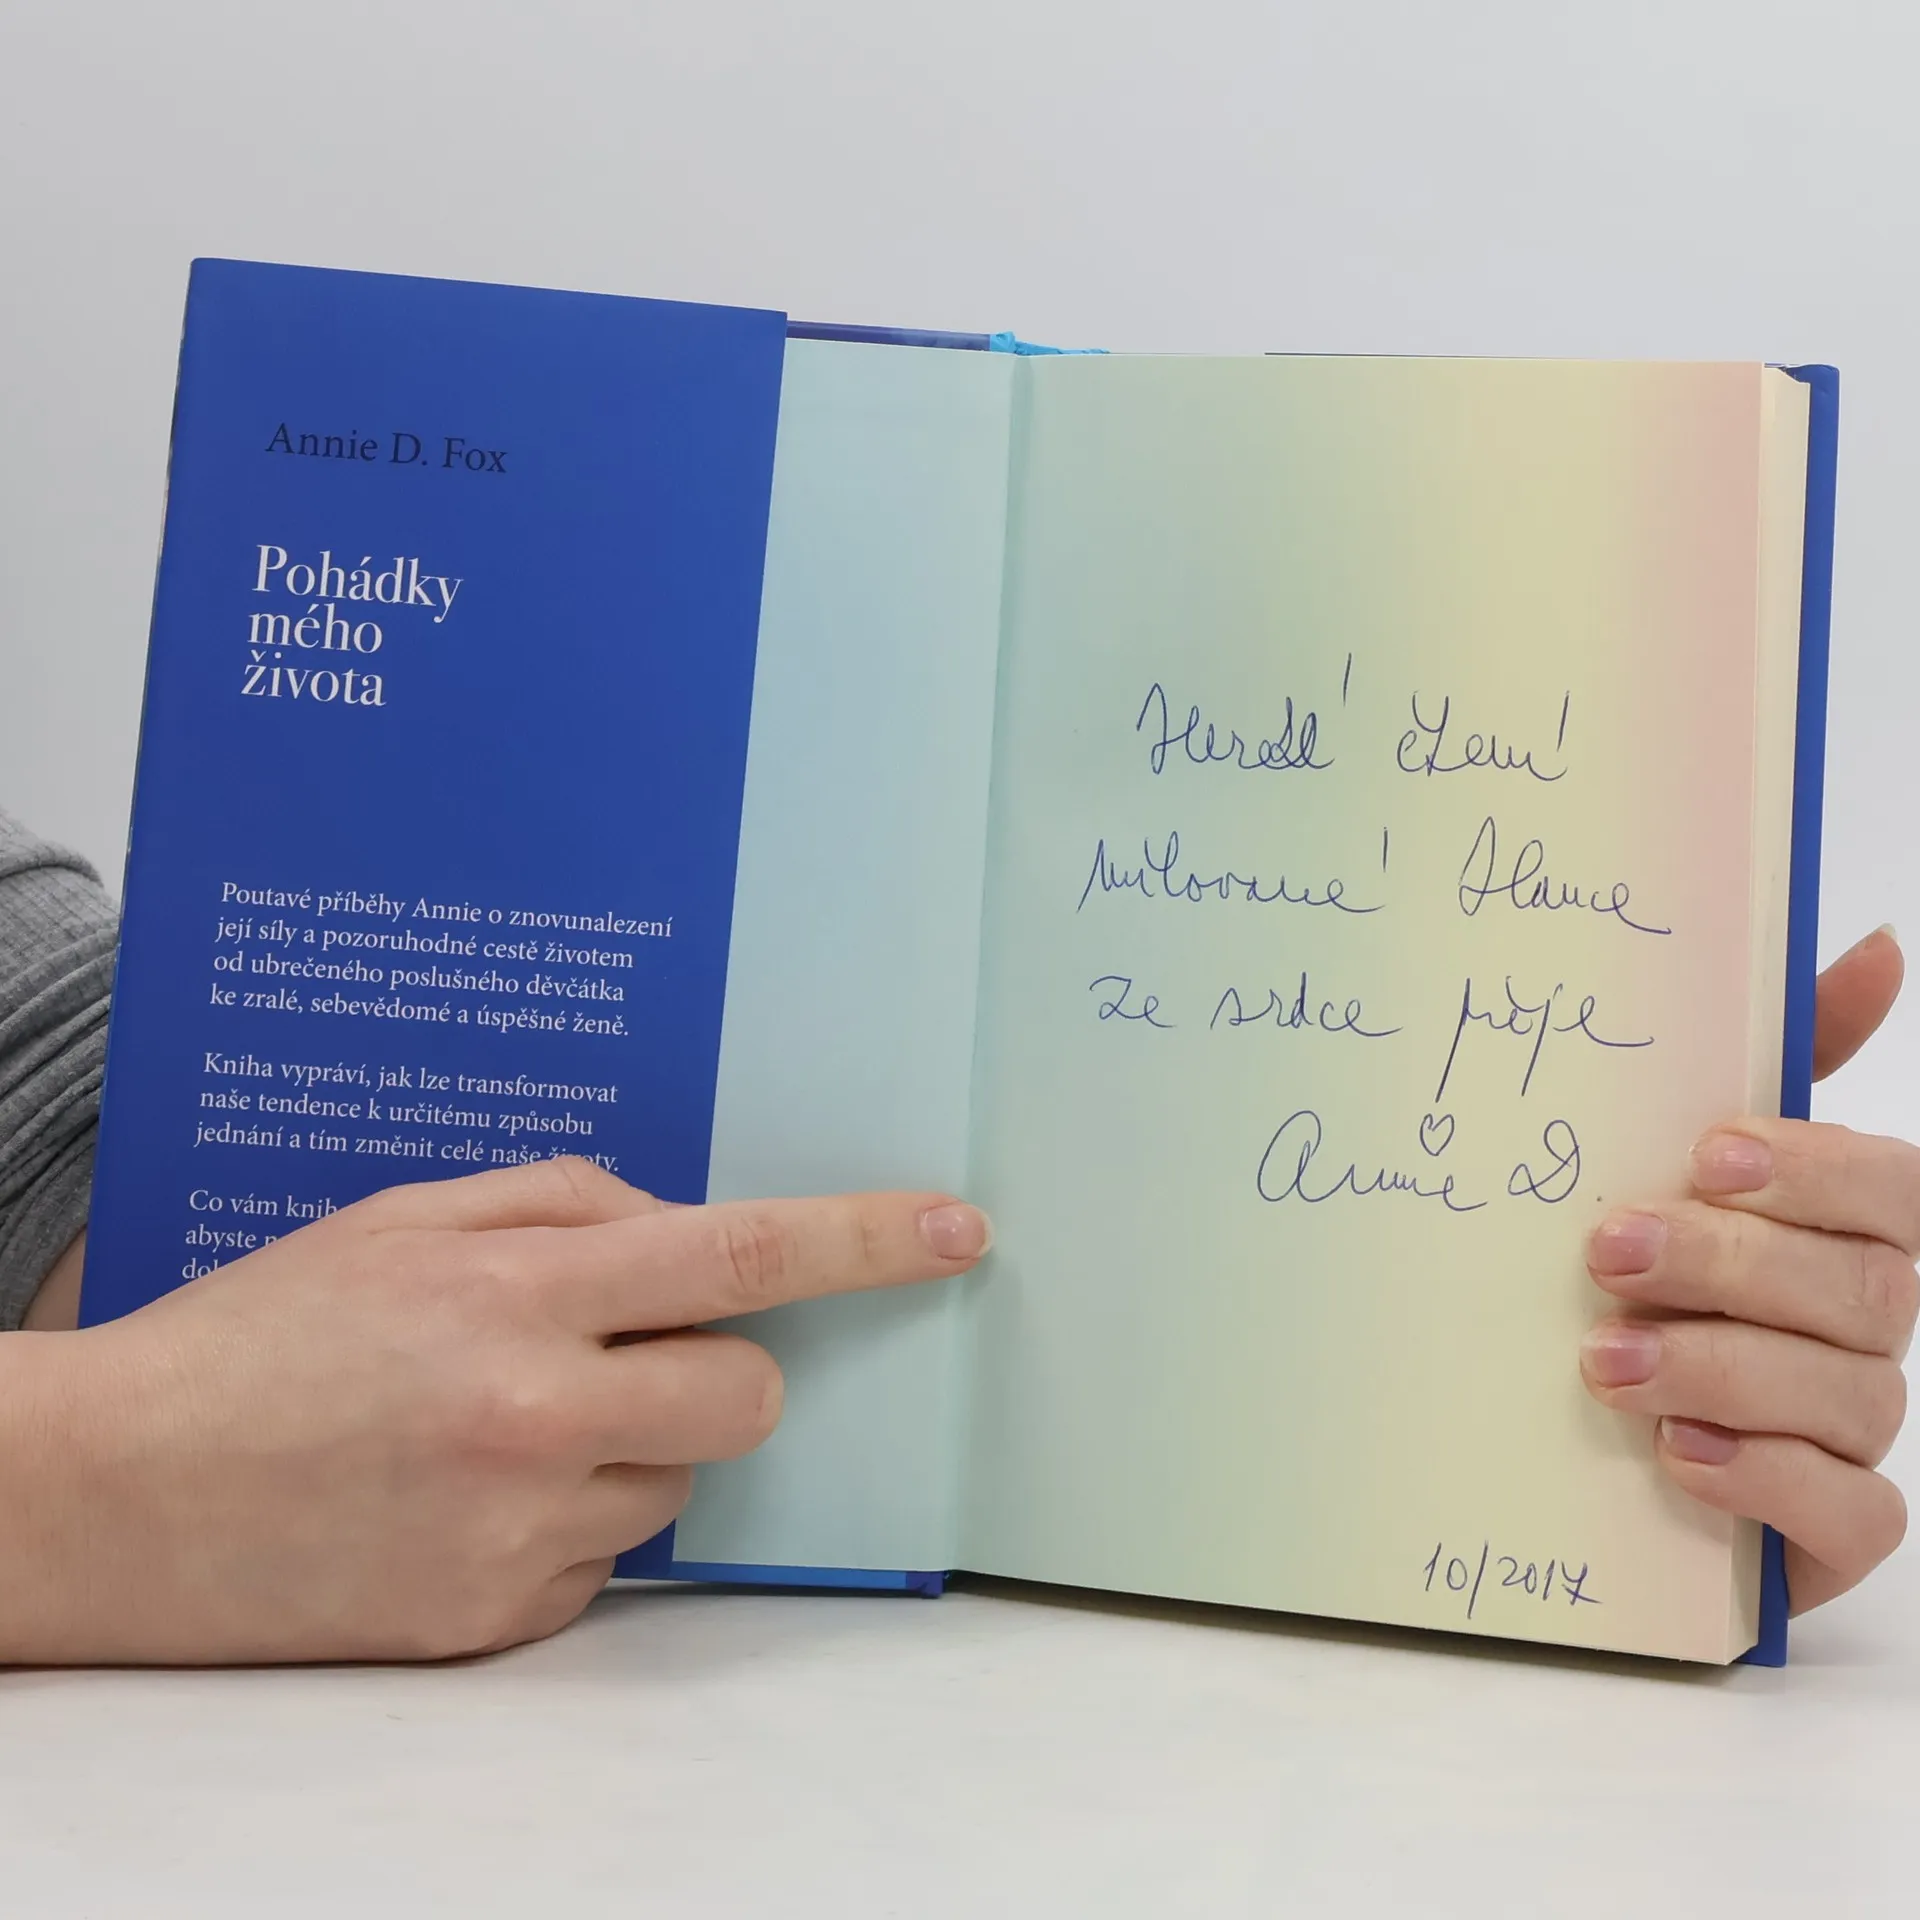 Annie D. Fox
Pohádky
mého
života
Poutavé příběhy Annie o znovunalezení
její síly a pozoruhodné cestě životem
od ubrečeného poslušného děvčátka
ke zralé, sebevědomé a úspěšné ženě.
Kniha vypráví, jak lze transformovat
naše tendence k určitému způsobu
jednání a tím změnit celé naše životy.
Co vám
abyste
milované Hance
ze srdce přeje
Annie D.
10/2017